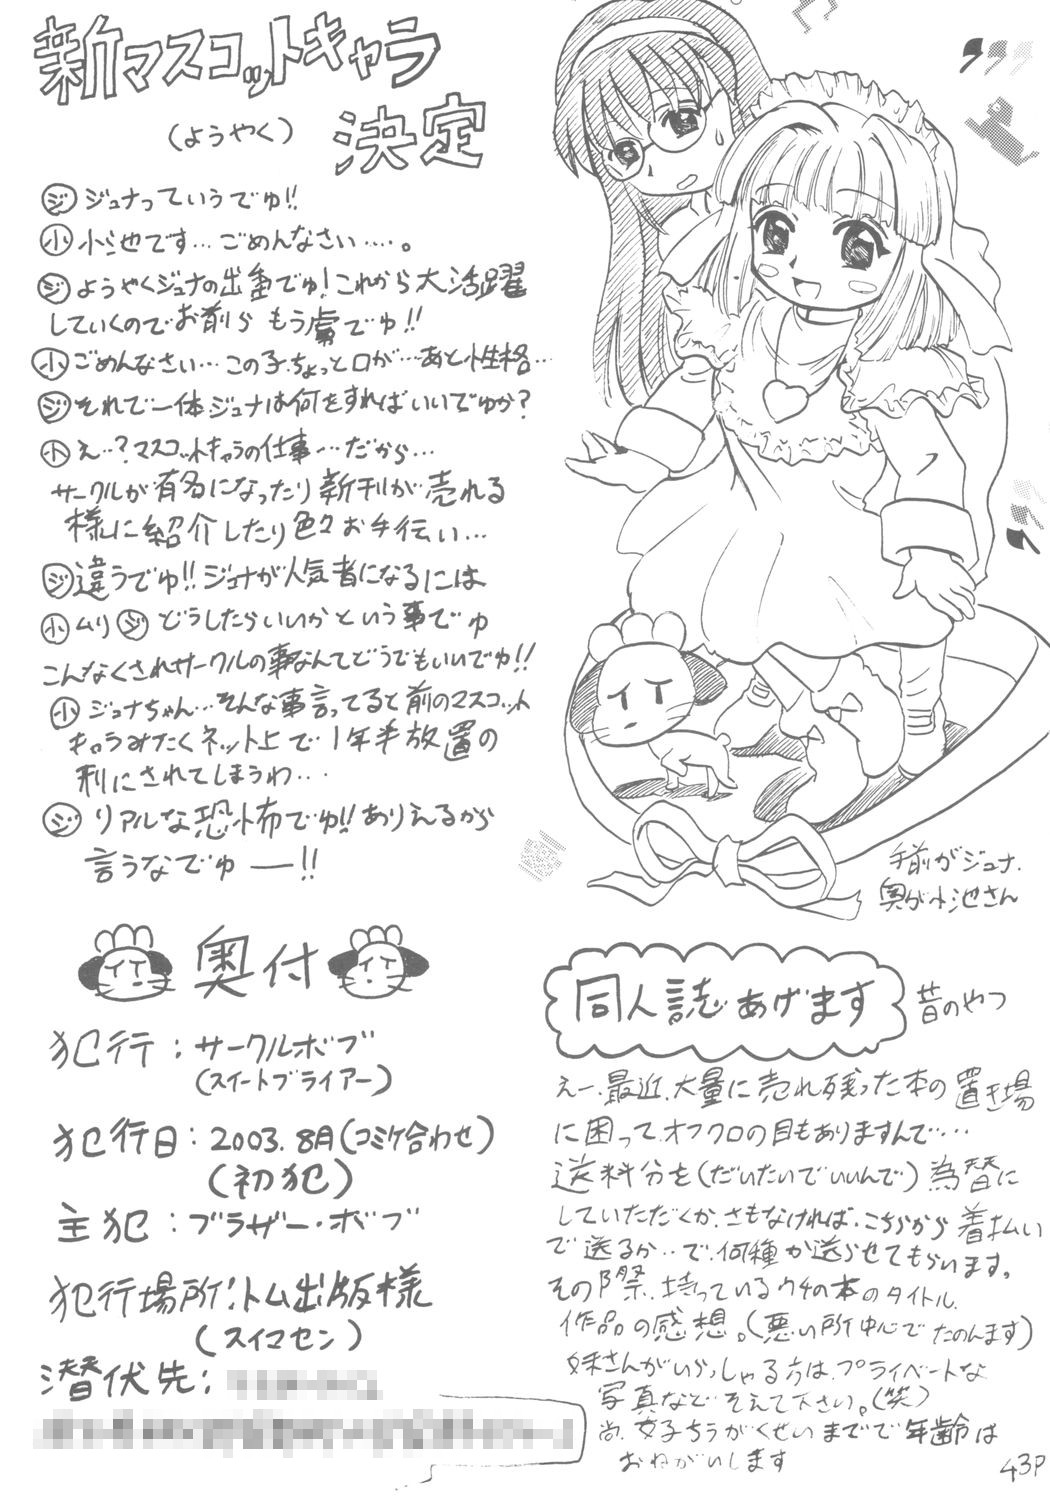 新マスコットキャラ
決定
(ようやく)
ジ ジュナっていうでゅ!!
小 小池です…ごめんなさい……。
ジ ようやくジュナの出番でゅ!これから大活躍
していくのでお前らもう虜でゅ!!
小 ごめんなさい…この子、ちょっと口が…あと性格…
ジ それで一体ジュナは何をすればいいでゅか?
小 え…?マスコットキャラの仕事…だから…
サークルが有名になったり新刊が売れる
様に紹介したり色々お手伝い…
ジ 違うでゅ!!ジュナが人気者になるには
小 ムリ ジ どうしたらいいかという事でゅ
こんなくされサークルの事なんてどうでもいいでゅ!!
小 ジュナちゃん…そんな事言ってると前のマスコット
キャラみたくネット上で1年半放置の
刑にされてしまうわ…
ジ リアルな恐怖でゅ!!ありえるから
言うなでゅ――!!
手前がジュナ.
奥が小池さん
イイ
奥付
犯行:サークルボブ
(スイートブライアー)
犯行日:2003.8月(コミケ合わせ)
(初犯)
主犯:ブラザー・ボブ
犯行場所:トム出版様
(スイマセン)
潜伏先:
同人誌あげます
昔のやつ
えー、最近、大量に売れ残った本の置き場
に困って、オフクロの目もありますんで…
送料分を(だいたいでいいんで)為替に
していただくか、さもなければ、こちらから着払い
で送るか…で、何種か送らせてもらいます。
その際、持っているウチの本のタイトル、
作品の感想。(悪い所中心でたのんます)
妹さんがいらっしゃる方は、プライベートな
写真などそえて下さい。(笑)
尚、女子ちうがくせいまでで年齢は
おねがいします
43P